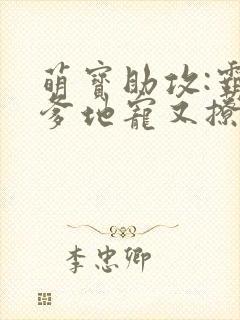 萌寶助攻:霸
爹地寵又撩
李忠卿